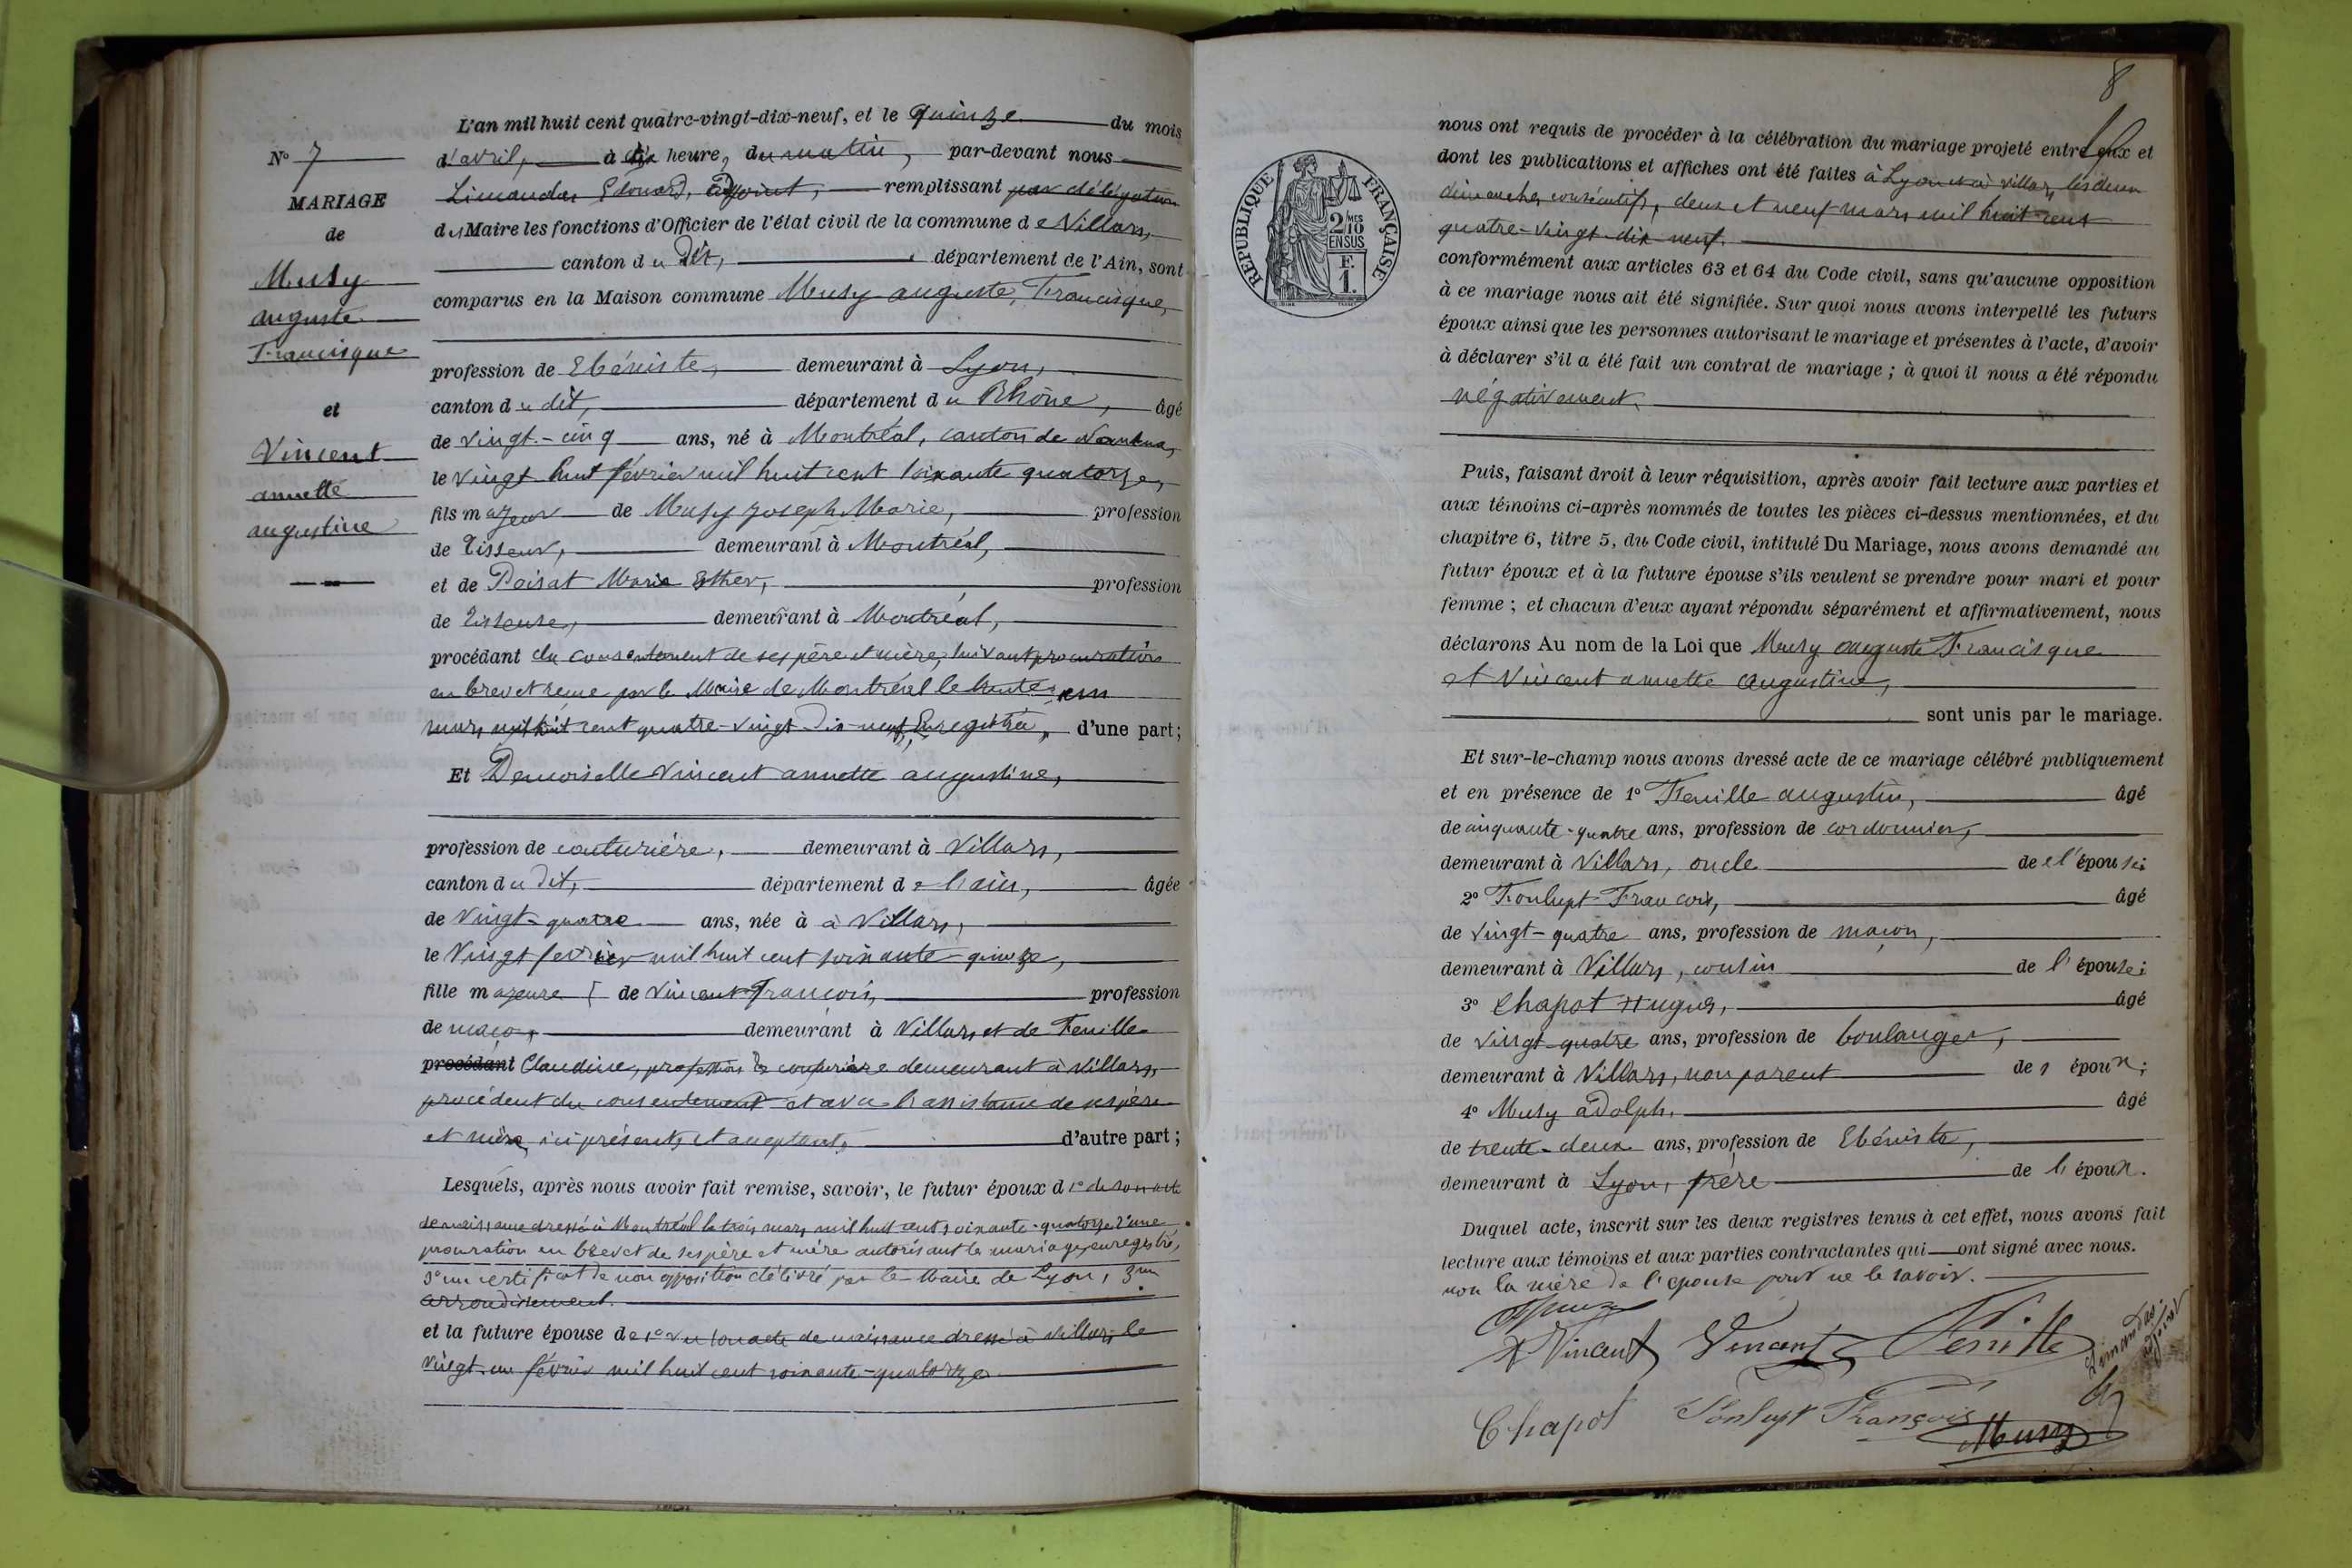 N° 7
MARIAGE
de
Musy
auguste
Francisque
et
Vincent
annette
augustine
L'an mil huit cent quatre-vingt-dix-neuf, et le quinze du mois
d'avril, à dix heures du matin, par-devant nous
Limandas Edouard, adjoint, remplissant par délégation
du Maire les fonctions d'Officier de l'état civil de la commune de Villars,
canton du dit, département de l'Ain, sont
comparus en la Maison commune Musy auguste, Francisque,
profession de Ebéniste, demeurant à Lyon,
canton du dit, département du Rhône, âgé
de vingt-cinq ans, né à Montréal, canton de Nantua,
le vingt huit février mil huit cent soixante quatorze,
fils majeur de Musy Joseph Marie, profession
de Tisseur, demeurant à Montréal,
et de Poisat Marie Esther, profession
de Tisseuse, demeurant à Montréal,
procédant du consentement de ses père et mère, suivant procuration
en brevet reçue par le Maire de Montréal le trente un
mars mil huit cent quatre-vingt dix-neuf, Enregistrée, d'une part;
Et Demoiselle Vincent annette augustine,
profession de couturière, demeurant à Villars,
canton du dit, département de l'ain, âgée
de vingt-quatre ans, née à à Villars,
le Vingt février mil huit cent soixante quinze,
fille majeure de Vincent François, profession
de maçon, demeurant à Villars et de Feuille
procédant Claudine, profession de couturière demeurant à Villars,
procédent du consentement et avec l'assistance de ses père
et mère, ici présents et acceptants, d'autre part;
Lesquels, après nous avoir fait remise, savoir, le futur époux d 1° de son acte
de naissance dressé à Montréal le trois mars mil huit cent soixante-quatorze 2° une
procuration en brevet de ses père et mère autorisant le mariage, enregistré,
3° un certificat de non opposition délivré par le Maire de Lyon, 3me
arrondissement.
et la future épouse de 1° de son acte de naissance dressé à Villars le
vingt-un février mil huit cent soixante-quatorze
8
REPUBLIQUE FRANÇAISE
2/10 MES
EN SUS
F.
1.
nous ont requis de procéder à la célébration du mariage projeté entre eux et
dont les publications et affiches ont été faites à Lyon et à Villars, les deux
dimanches consécutifs, deux et neuf mars mil huit cent
quatre-vingt-dix-neuf.
conformément aux articles 63 et 64 du Code civil, sans qu'aucune opposition
à ce mariage nous ait été signifiée. Sur quoi nous avons interpellé les futurs
époux ainsi que les personnes autorisant le mariage et présentes à l'acte, d'avoir
à déclarer s'il a été fait un contrat de mariage ; à quoi il nous a été répondu
négativement.
Puis, faisant droit à leur réquisition, après avoir fait lecture aux parties et
aux témoins ci-après nommés de toutes les pièces ci-dessus mentionnées, et du
chapitre 6, titre 5, du Code civil, intitulé Du Mariage, nous avons demandé au
futur époux et à la future épouse s'ils veulent se prendre pour mari et pour
femme ; et chacun d'eux ayant répondu séparément et affirmativement, nous
déclarons Au nom de la Loi que Musy auguste Francisque
et Vincent annette augustine,
sont unis par le mariage.
Et sur-le-champ nous avons dressé acte de ce mariage célébré publiquement
et en présence de 1° Feuille augustin, âgé
de cinquante-quatre ans, profession de cordonnier,
demeurant à Villars, oncle de l'épouse;
2° Fonlupt François, âgé
de vingt-quatre ans, profession de maçon,
demeurant à Villars, cousin de l'épouse;
3° Chapot Hugues, âgé
de vingt-quatre ans, profession de boulanger,
demeurant à Villars, non parent de s époux;
4° Musy adolphe, âgé
de trente-deux ans, profession de Ebéniste,
demeurant à Lyon, frère de l'époux.
Duquel acte, inscrit sur les deux registres tenus à cet effet, nous avons fait
lecture aux témoins et aux parties contractantes qui ont signé avec nous.
non la mère de l'epouse pour ne le savoir.
A Vincent Vincent Feuille
Limandas
adjoint
Chapot Fonlupt François
Musy